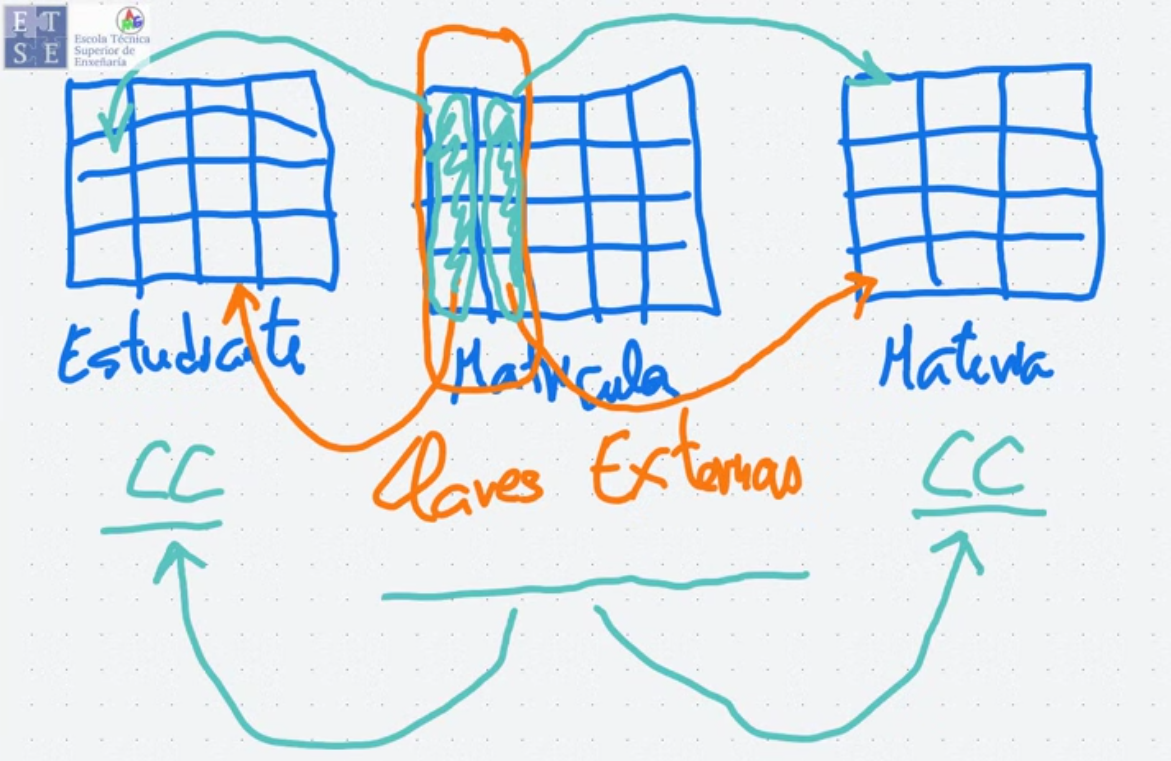 E T
S E
Escola Técnica
Superior de
Enxeñaría
Estudiante
Matrícula
Materia
CC
Claves Externas
CC